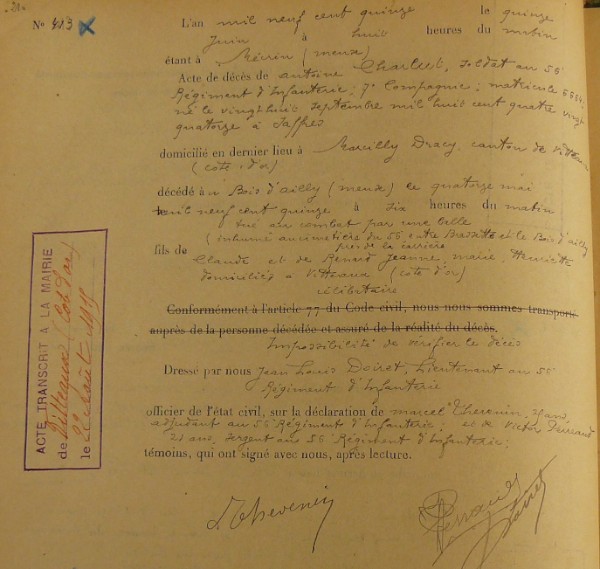 Nº 413 X
L'an mil neuf cent quinze le quinze
Juin à huit heures du matin
étant à Mécrin (meuse)
Acte de décès de antoine Charlut, soldat au 56
Régiment d'Infanterie; 7e Compagnie; matricule
né le vingt huit septembre mil huit cent quatre vingt
quatorze à Jaffres
domicilié en dernier lieu à Marcilly Dracy, canton de Vitteaux
(côte d'or)
décédé au Bois d'ailly (meuse) le quatorze mai
mil neuf cent quinze à six heures du matin
tué au combat par une balle
(inhumé au cimetière du 56 entre Brassitte et le Bois d'ailly
près de la carrière
fils de Claude et de Renard Jeanne, marie, Henriette
domiciliés à Vitteaux (côte d'or)
célibataire
Conformément à l'article 77 du Code civil, nous nous sommes transporté
auprès de la personne décédée et assuré de la réalité du décès.
Impossibilité de vérifier le décès
Dressé par nous Jean Louis Doiret, Lieutenant au 56
Régiment d'Infanterie
officier de l'état civil, sur la déclaration de marcel Thevenin, ans,
adjudant au 56 Régiment d'Infanterie; et de Victor Perraud
21 ans, sergent au 56 Régiment d'Infanterie;
témoins, qui ont signé avec nous, après lecture.
Thevenin
Perraud
Doiret
ACTE TRANSCRIT A LA MAIRIE
de Vitteaux (Côte d'or)
le 22 Août 1915